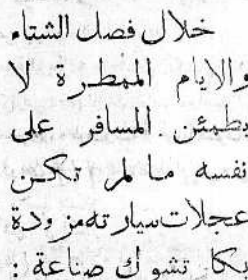 خلال فصل الشتاء
والايام الممطرة لا
يطمئن المسافر على
نفسه ما لم تكن
عجلات سيارته مزودة
بكا تشوك صناعة :